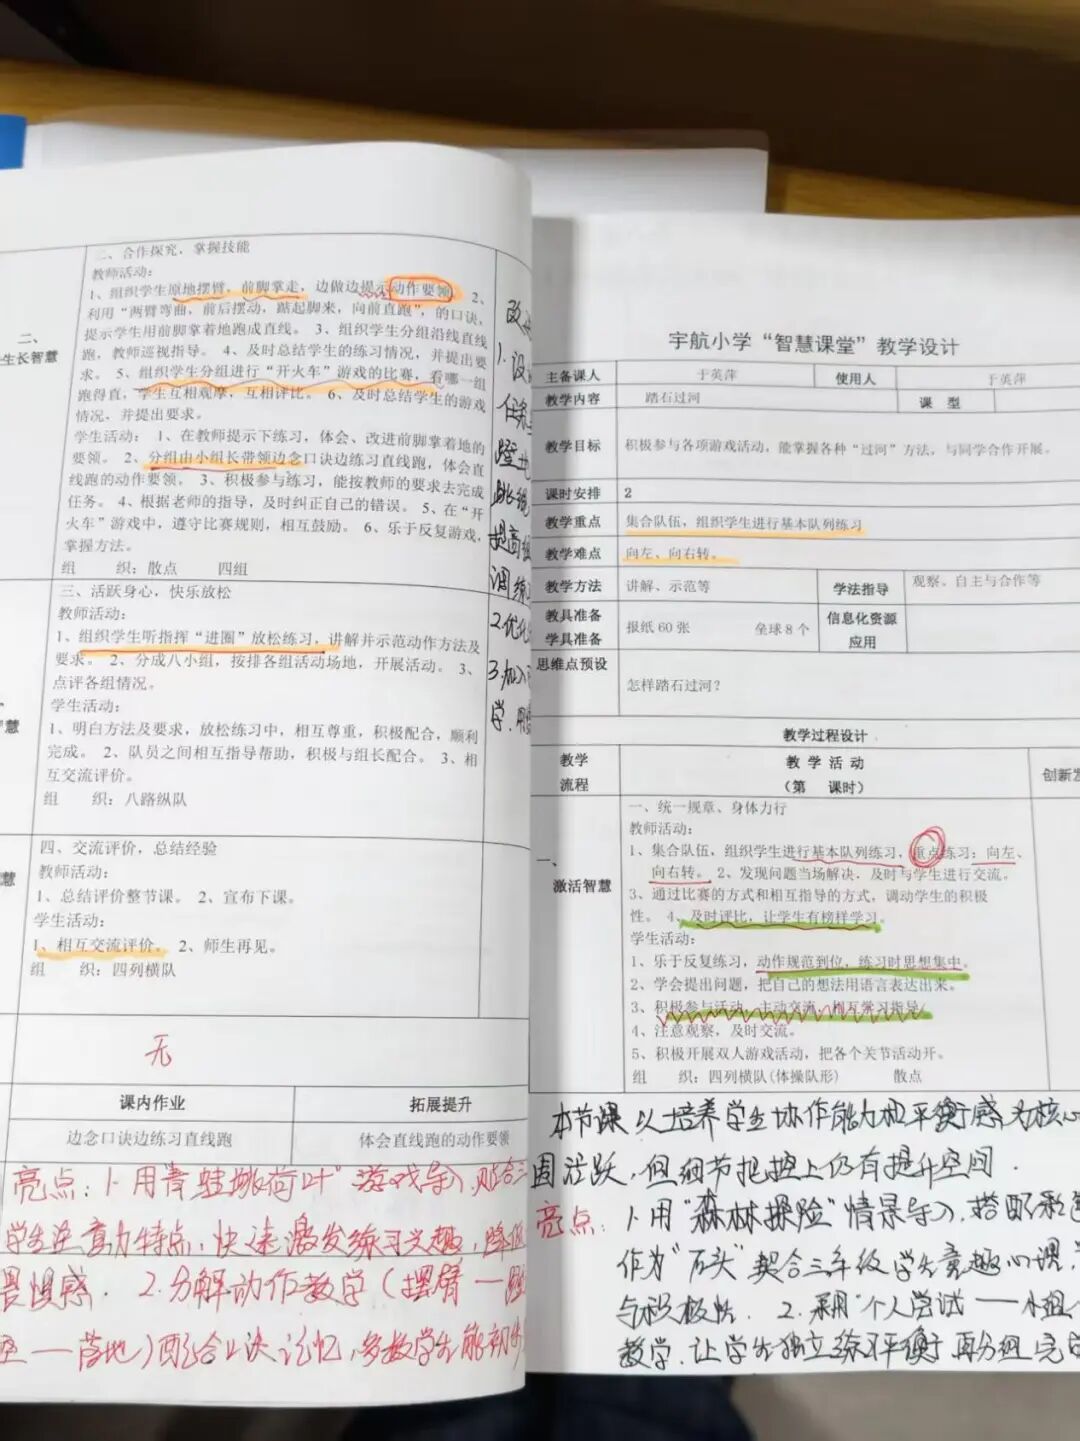 二、合作探究，掌握技能
教师活动：
1、组织学生原地摆臂，前脚掌走，边做边提示动作要领 2、
利用“两臂弯曲，前后摆动，踮起脚来，向前直跑”，的口诀，
提示学生用前脚掌着地跑成直线。 3、组织学生分组沿线直线
跑，教师巡视指导。 4、及时总结学生的练习情况，并提出要
求。 5、组织学生分组进行“开火车”游戏的比赛，看哪一组
跑得直，学生互相观摩，互相评比。 6、及时总结学生的游戏
情况，并提出要求。
学生活动： 1、在教师提示下练习，体会、改进前脚掌着地的
要领。 2、分组由小组长带领边念口诀边练习直线跑，体会直
线跑的动作要领。 3、积极参与练习，能按教师的要求去完成
任务。 4、根据老师的指导，及时纠正自己的错误。 5、在“开
火车”游戏中，遵守比赛规则，相互鼓励。 6、乐于反复游戏，
掌握方法。
组 织：散点 四组
二、
生长智慧
三、活跃身心，快乐放松
教师活动：
1、组织学生听指挥“进圈”放松练习，讲解并示范动作方法及
要求。 2、分成八小组，按排各组活动场地，开展活动。 3、
点评各组情况。
学生活动：
1、明白方法及要求，放松练习中，相互尊重，积极配合，顺利
完成。 2、队员之间相互指导帮助，积极与组长配合。 3、相
互交流评价。
组 织：八路纵队
慧
四、交流评价，总结经验
教师活动：
1、总结评价整节课。 2、宣布下课。
学生活动：
1、相互交流评价。 2、师生再见。
组 织：四列横队
慧
改
1.设
跳
提高
训练
2.优化
3.加入
学
无
课内作业 拓展提升
边念口诀边练习直线跑 体会直线跑的动作要领
亮点：1.用“青蛙跳荷叶”游戏导入，贴合三
学生注意力特点，快速激发练习兴趣，降低
畏惧感． 2.分解动作教学（摆臂一蹬
一落地）配合口诀记忆，多数学生能初步
宇航小学“智慧课堂”教学设计
主备课人 于英萍 使用人 于英萍
教学内容 踏石过河 课 型
教学目标 积极参与各项游戏活动，能掌握各种“过河”方法，与同学合作开展。
课时安排 2
教学重点 集合队伍，组织学生进行基本队列练习
教学难点 向左、向右转。
教学方法 讲解、示范等 学法指导 观察、自主与合作等
教具准备 学具准备 报纸60张 垒球8个 信息化资源应用
思维点预设 怎样踏石过河？
教学过程设计
教学流程 教 学 活 动
（第 课时） 创新发
一、统一规章、身体力行
教师活动：
1、集合队伍，组织学生进行基本队列练习，重点练习：向左、
向右转。 2、发现问题当场解决，及时与学生进行交流。
3、通过比赛的方式和相互指导的方式，调动学生的积极
性。 4、及时评比，让学生有榜样学习。
学生活动：
1、乐于反复练习，动作规范到位，练习时思想集中。
2、学会提出问题，把自己的想法用语言表达出来。
3、积极参与活动，主动交流，相互学习指导
4、注意观察，及时交流。
5、积极开展双人游戏活动，把各个关节活动开。
组 织：四列横队(体操队形) 散点
一、
激活智慧
本节课以培养学生协作能力和平衡感为核心
围活跃，但细节把控上仍有提升空间．
亮点：1.用“森林探险”情景导入，搭配彩色
作为“石头”契合三年级学生童趣心理，
与积极性． 2.采用“个人尝试——小组
教学，让学生独立练平衡再分组完